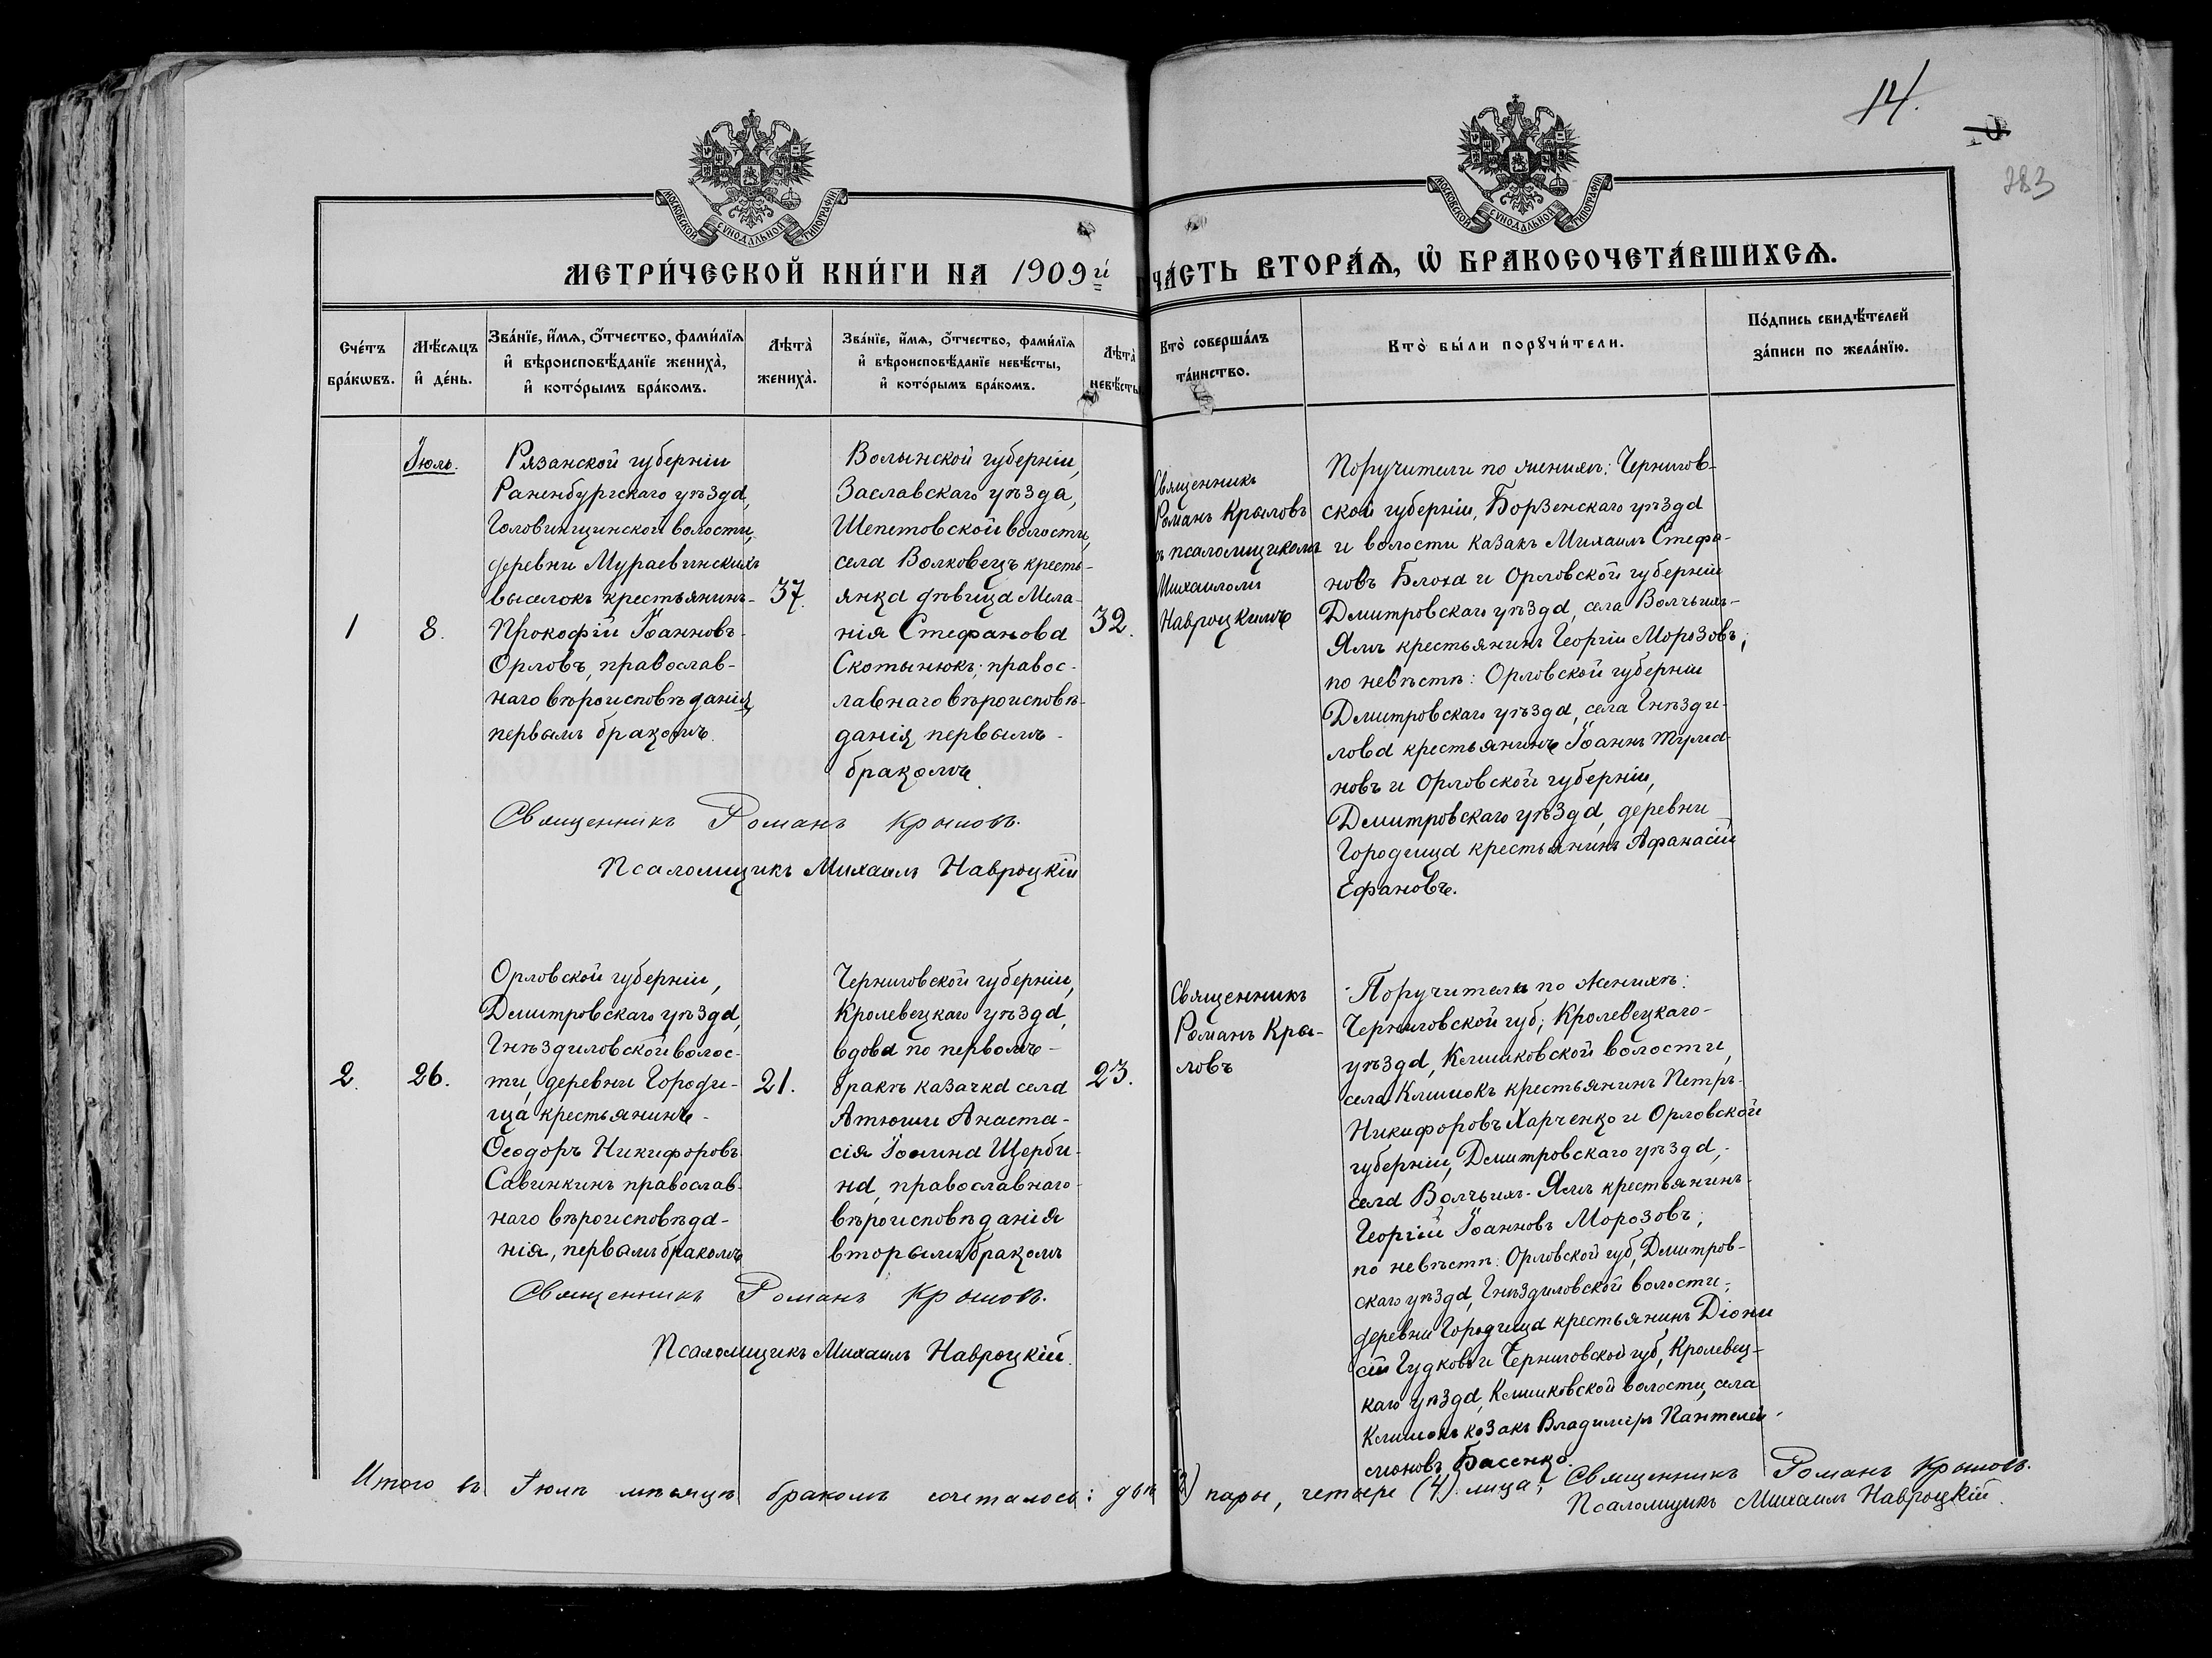 14.
283
МОСКОВСКОЙ СѴНОДАЛЬНОЙ ТИПОГРАФІИ
МОСКОВСКОЙ СѴНОДАЛЬНОЙ ТИПОГРАФІИ
МЕТРИ́ЧЕСКОЙ КНИ́ГИ НА 1909й
ЧА́СТЬ ВТОРА́Ѧ, Ѡ҆ БРАКОСОЧЕТА́ВШИХСѦ.
Сче́тъ
бра́кѡвъ.
Мѣ́сѧцъ
и҆ де́нь.
Зва́нїе, и҆́мѧ, ѻ҆́тчество, фами́лїѧ
и҆ вѣроисповѣ́данїе жениха̀,
и҆ кото́рымъ бра́комъ.
Лѣта̀
жениха̀.
Зва́нїе, и҆́мѧ, ѻ҆́тчество, фами́лїѧ
и҆ вѣроисповѣ́данїе невѣ́сты,
и҆ кото́рымъ бра́комъ.
Лѣта̀
невѣ́сты
Кто̀ соверша́лъ
та́инство.
Кто̀ бы́ли порꙋчи́тели.
По́дпись свидѣ́телей
за́писи по жела́нїю.
Іюль.
1
8.
Рязанской губерніи
Раненбургскаго уѣзда,
Головинщинской волости,
деревни Мураевинскихъ
выселокъ крестьянинъ-
Прокофій Іоанновъ-
Орловъ, православ-
наго вѣроисповѣданія,
первымъ бракомъ.
37.
Волынской губерніи,
Заславскаго уѣзда,
Шепетовской волости,
села Волковецъ кресть-
янка дѣвица Мела-
нія Стефанова
Скотынюкъ; правос-
лавнаго вѣроисповѣ-
данія первымъ-
бракомъ.
32.
Священникъ
Романъ Крыловъ
съ псаломщикомъ
Михаиломъ
Навроцкимъ
Поручители по женихѣ: Чернигов-
ской губерніи, Борзенскаго уѣзда
и волости казакъ Михаилъ Стефа-
новъ Блоха и Орловской губерніи
Дмитровскаго уѣзда, села Волчьихъ-
Ямъ крестьянинъ Георгій Морозовъ;
по невѣстѣ: Орловской губерніи
Дмитровскаго уѣзда, села Гнѣзди-
лова крестьянинъ Іоаннъ Тума-
новъ и Орловской губерніи,
Дмитровскаго уѣзда, деревни
Городища крестьянинъ Афанасій
Ефановъ.
Священникъ Романъ Крыловъ.
Псаломщикъ Михаилъ Навроцкій
2.
26.
Орловской губерніи,
Дмитровскаго уѣзда,
Гнѣздиловской волос-
ти, деревни Городи-
ща крестьянинъ-
Ѳеодоръ Никифоровъ
Савинкинъ православ-
наго вѣроисповѣда-
нія, первымъ бракомъ
21.
Черниговской губерніи,
Кролевецкаго уѣзда,
вдова по первомъ-
бракѣ казачка села
Атюши Анаста-
сія Іоанна Щерби-
на, православнаго-
вѣроисповѣданія
вторымъ бракомъ
23.
Священникъ
Романъ Кры-
ловъ
Поручители по женихѣ:
Черниговской губ; Кролевецкаго-
уѣзда, Клишковской волости,
села Клишокъ крестьянинъ Петръ-
Никифоровъ Харченко и Орловской
губерніи, Дмитровскаго уѣзда,-
села Волчьихъ-Ямъ крестьянинъ-
Георгій Іоанновъ Морозовъ;
по невѣстѣ: Орловской губ, Дмитров-
скаго уѣзда, Гнѣздиловской волости;
деревни Городища крестьянинъ Діони
сій Гудковъ и Черниговской губ, Кролевец-
каго уѣзда, Клишковской волости, села
Клишокъ козакъ Владиміръ Пантелей-
моновъ Басенко.
Священникъ Романъ Крыловъ.
Псаломщикъ Михаилъ Навроцкій.
Итого въ Іюлѣ мѣсяцѣ бракомъ сочеталось: двѣ (2) пары, четыре (4) лица;
Священникъ Романъ Крыловъ.
Псаломщикъ Михаилъ Навроцкій.